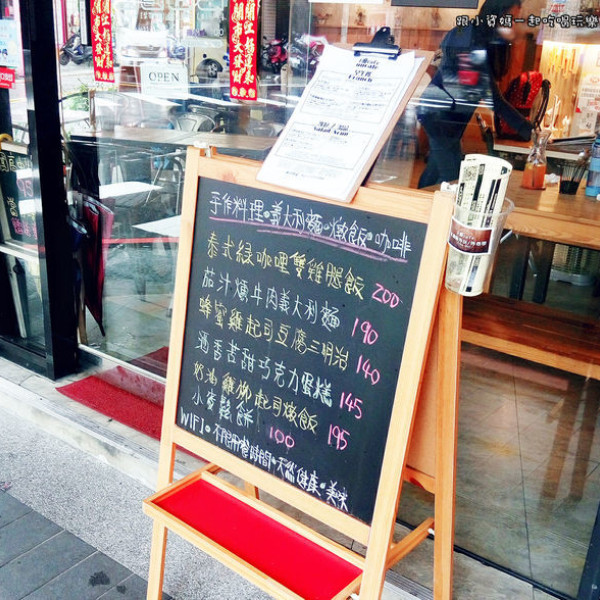 跟小資媽一起吃喝玩樂
OPEN
手作料理•義大利麵•燉飯•咖啡
泰式綠咖哩雙雞腿飯 200
茄汁燉牛肉義大利麵 190
蜂蜜雞起司豆腐三明治 140
酒香苦甜巧克力蛋糕 145
奶油雞柳起司燉飯 195
小麥鬆餅 100
WIFI•不限用餐時間•天然•健康•美味